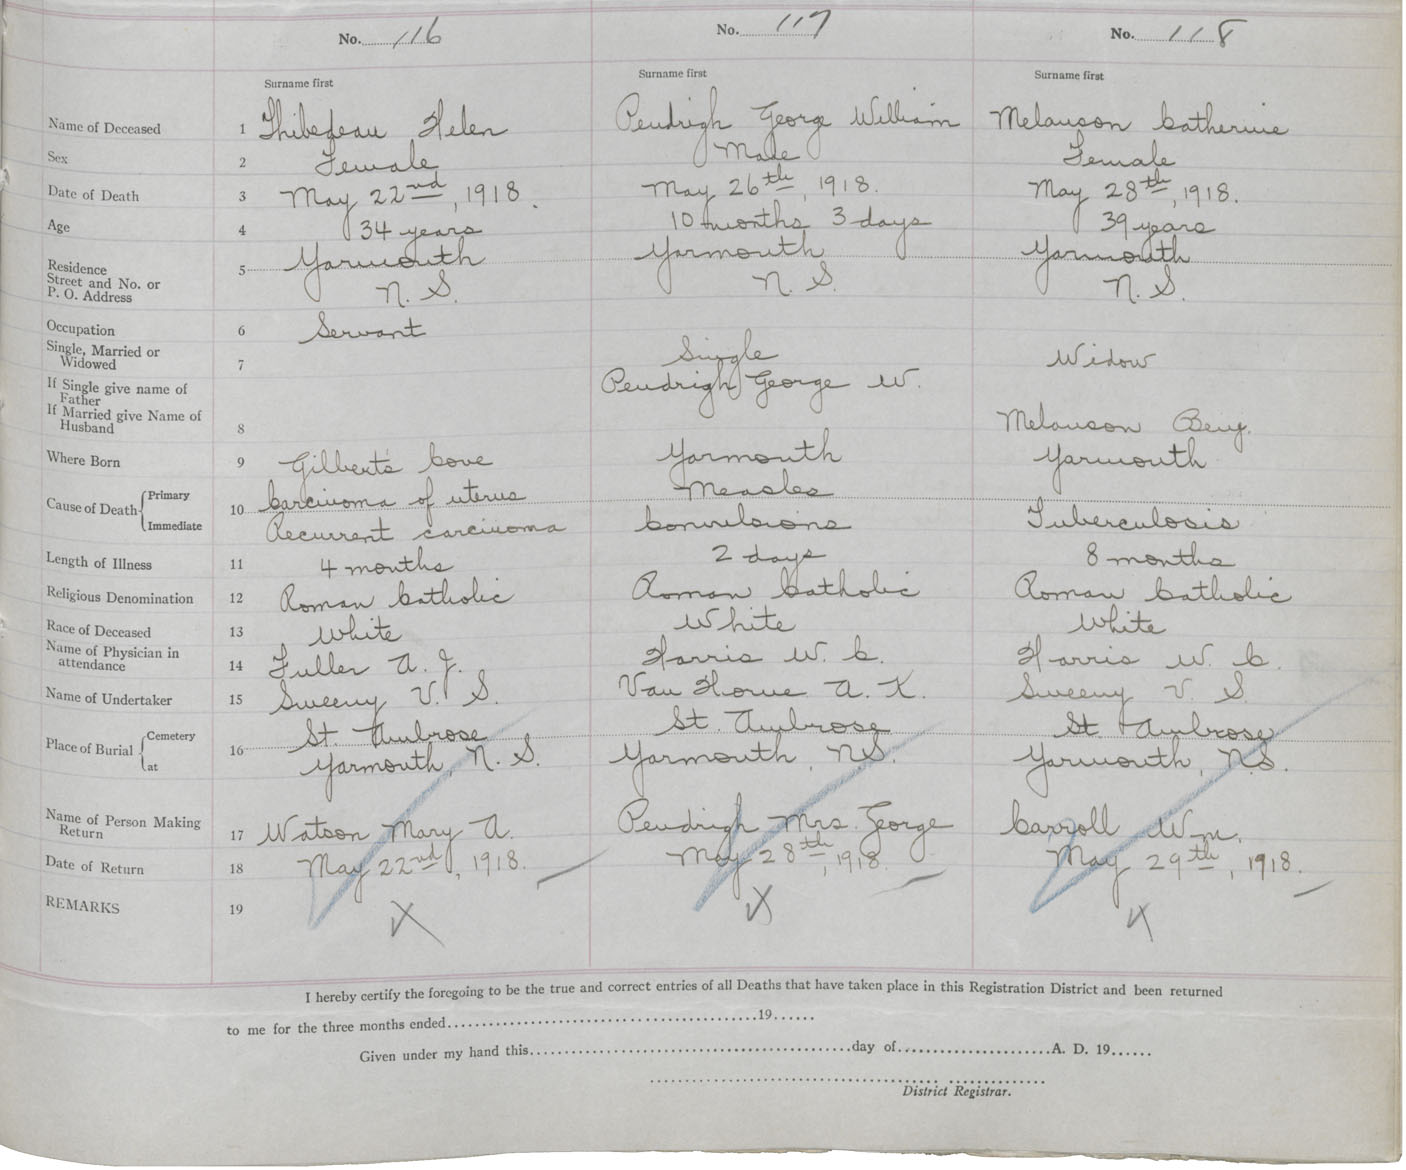 No. 116 No. 117 No. 118
Surname first Surname first Surname first
Name of Deceased 1 Thibedeau Helen Pendrigh George William Melanson Catherine
Sex 2 Female Male Female
Date of Death 3 May 22nd, 1918. May 26th, 1918. May 28th, 1918.
Age 4 34 years 10 months 3 days 39 years
Residence Street and No. or P. O. Address 5 Yarmouth Yarmouth Yarmouth
N. S. N. S. N. S.
Occupation 6 Servant
Single, Married or Widowed 7 Single Widow
If Single give name of Father Pendrigh George W.
If Married give Name of Husband 8 Melanson Benj.
Where Born 9 Gilberts Cove Yarmouth Yarmouth
Cause of Death Primary 10 Carcinoma of uterus Measles
Immediate Recurrent carcinoma Convulsions Tuberculosis
Length of Illness 11 4 months 2 days 8 months
Religious Denomination 12 Roman Catholic Roman Catholic Roman Catholic
Race of Deceased 13 White White White
Name of Physician in attendance 14 Fuller A. J. Harris W. C. Harris W. C.
Name of Undertaker 15 Sweeny V. S. Van Horne A. K. Sweeny V. S.
Place of Burial Cemetery 16 St. Ambrose St. Ambrose St. Ambrose
at Yarmouth, N. S. Yarmouth, N.S. Yarmouth, N.S.
Name of Person Making Return 17 Watson Mary A. Pendrigh Mrs. George Carroll Wm.
Date of Return 18 May 22nd, 1918. May 28th, 1918. May 29th, 1918.
REMARKS 19
I hereby certify the foregoing to be the true and correct entries of all Deaths that have taken place in this Registration District and been returned
to me for the three months ended..........19......
Given under my hand this..........day of..........A. D. 19......
District Registrar.